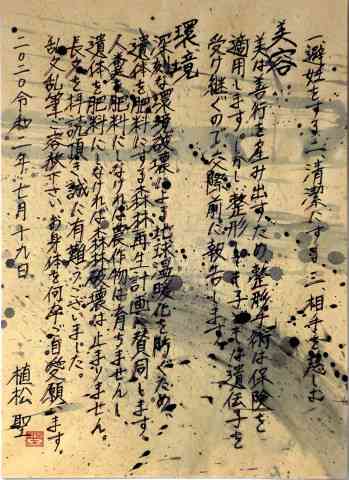 一避妊をする二清潔にする三相手を慈しむ
美容
美は善行を産み出すため、整形手術は保険を
適用します。しかし、整形しても子供には遺伝子を
受け継ぐので交際前に報告します。
環境
深刻な環境破壊による地球温暖化を防ぐため、
遺体を肥料にする森林再生計画に賛同します。
人糞を肥料にしなければ農作物は育ちませんし
遺体を肥料にしなければ森林破壊は止まりません。
長文を拝読頂き誠に有難うございました。
乱文乱筆ご容赦下さい、お身体を何卒ご自愛願います。
二〇二〇令和二年七月十九日
植松 聖